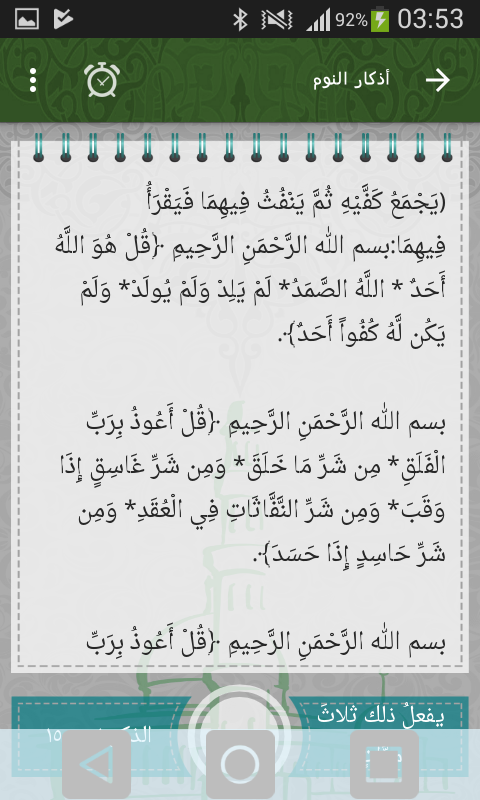 92% 03:53
أذكار النوم
(يَجْمَعُ كَفَّيْهِ ثُمَّ يَنْفُثُ فِيهِمَا فَيَقْرَأُ
فِيهِمَا:بسم الله الرَّحْمَنِ الرَّحِيمِ ﴿قُلْ هُوَ اللَّهُ
أَحَدٌ * اللَّهُ الصَّمَدُ* لَمْ يَلِدْ وَلَمْ يُولَدْ* وَلَمْ
يَكُن لَّهُ كُفُواً أَحَدٌ﴾.
بسم الله الرَّحْمَنِ الرَّحِيمِ ﴿قُلْ أَعُوذُ بِرَبِّ
الْفَلَقِ* مِن شَرِّ مَا خَلَقَ* وَمِن شَرِّ غَاسِقٍ إِذَا
وَقَبَ* وَمِن شَرِّ النَّفَّاثَاتِ فِي الْعُقَدِ* وَمِن
شَرِّ حَاسِدٍ إِذَا حَسَدَ﴾.
بسم الله الرَّحْمَنِ الرَّحِيمِ ﴿قُلْ أَعُوذُ بِرَبِّ
يفعلُ ذلك ثلاثَ